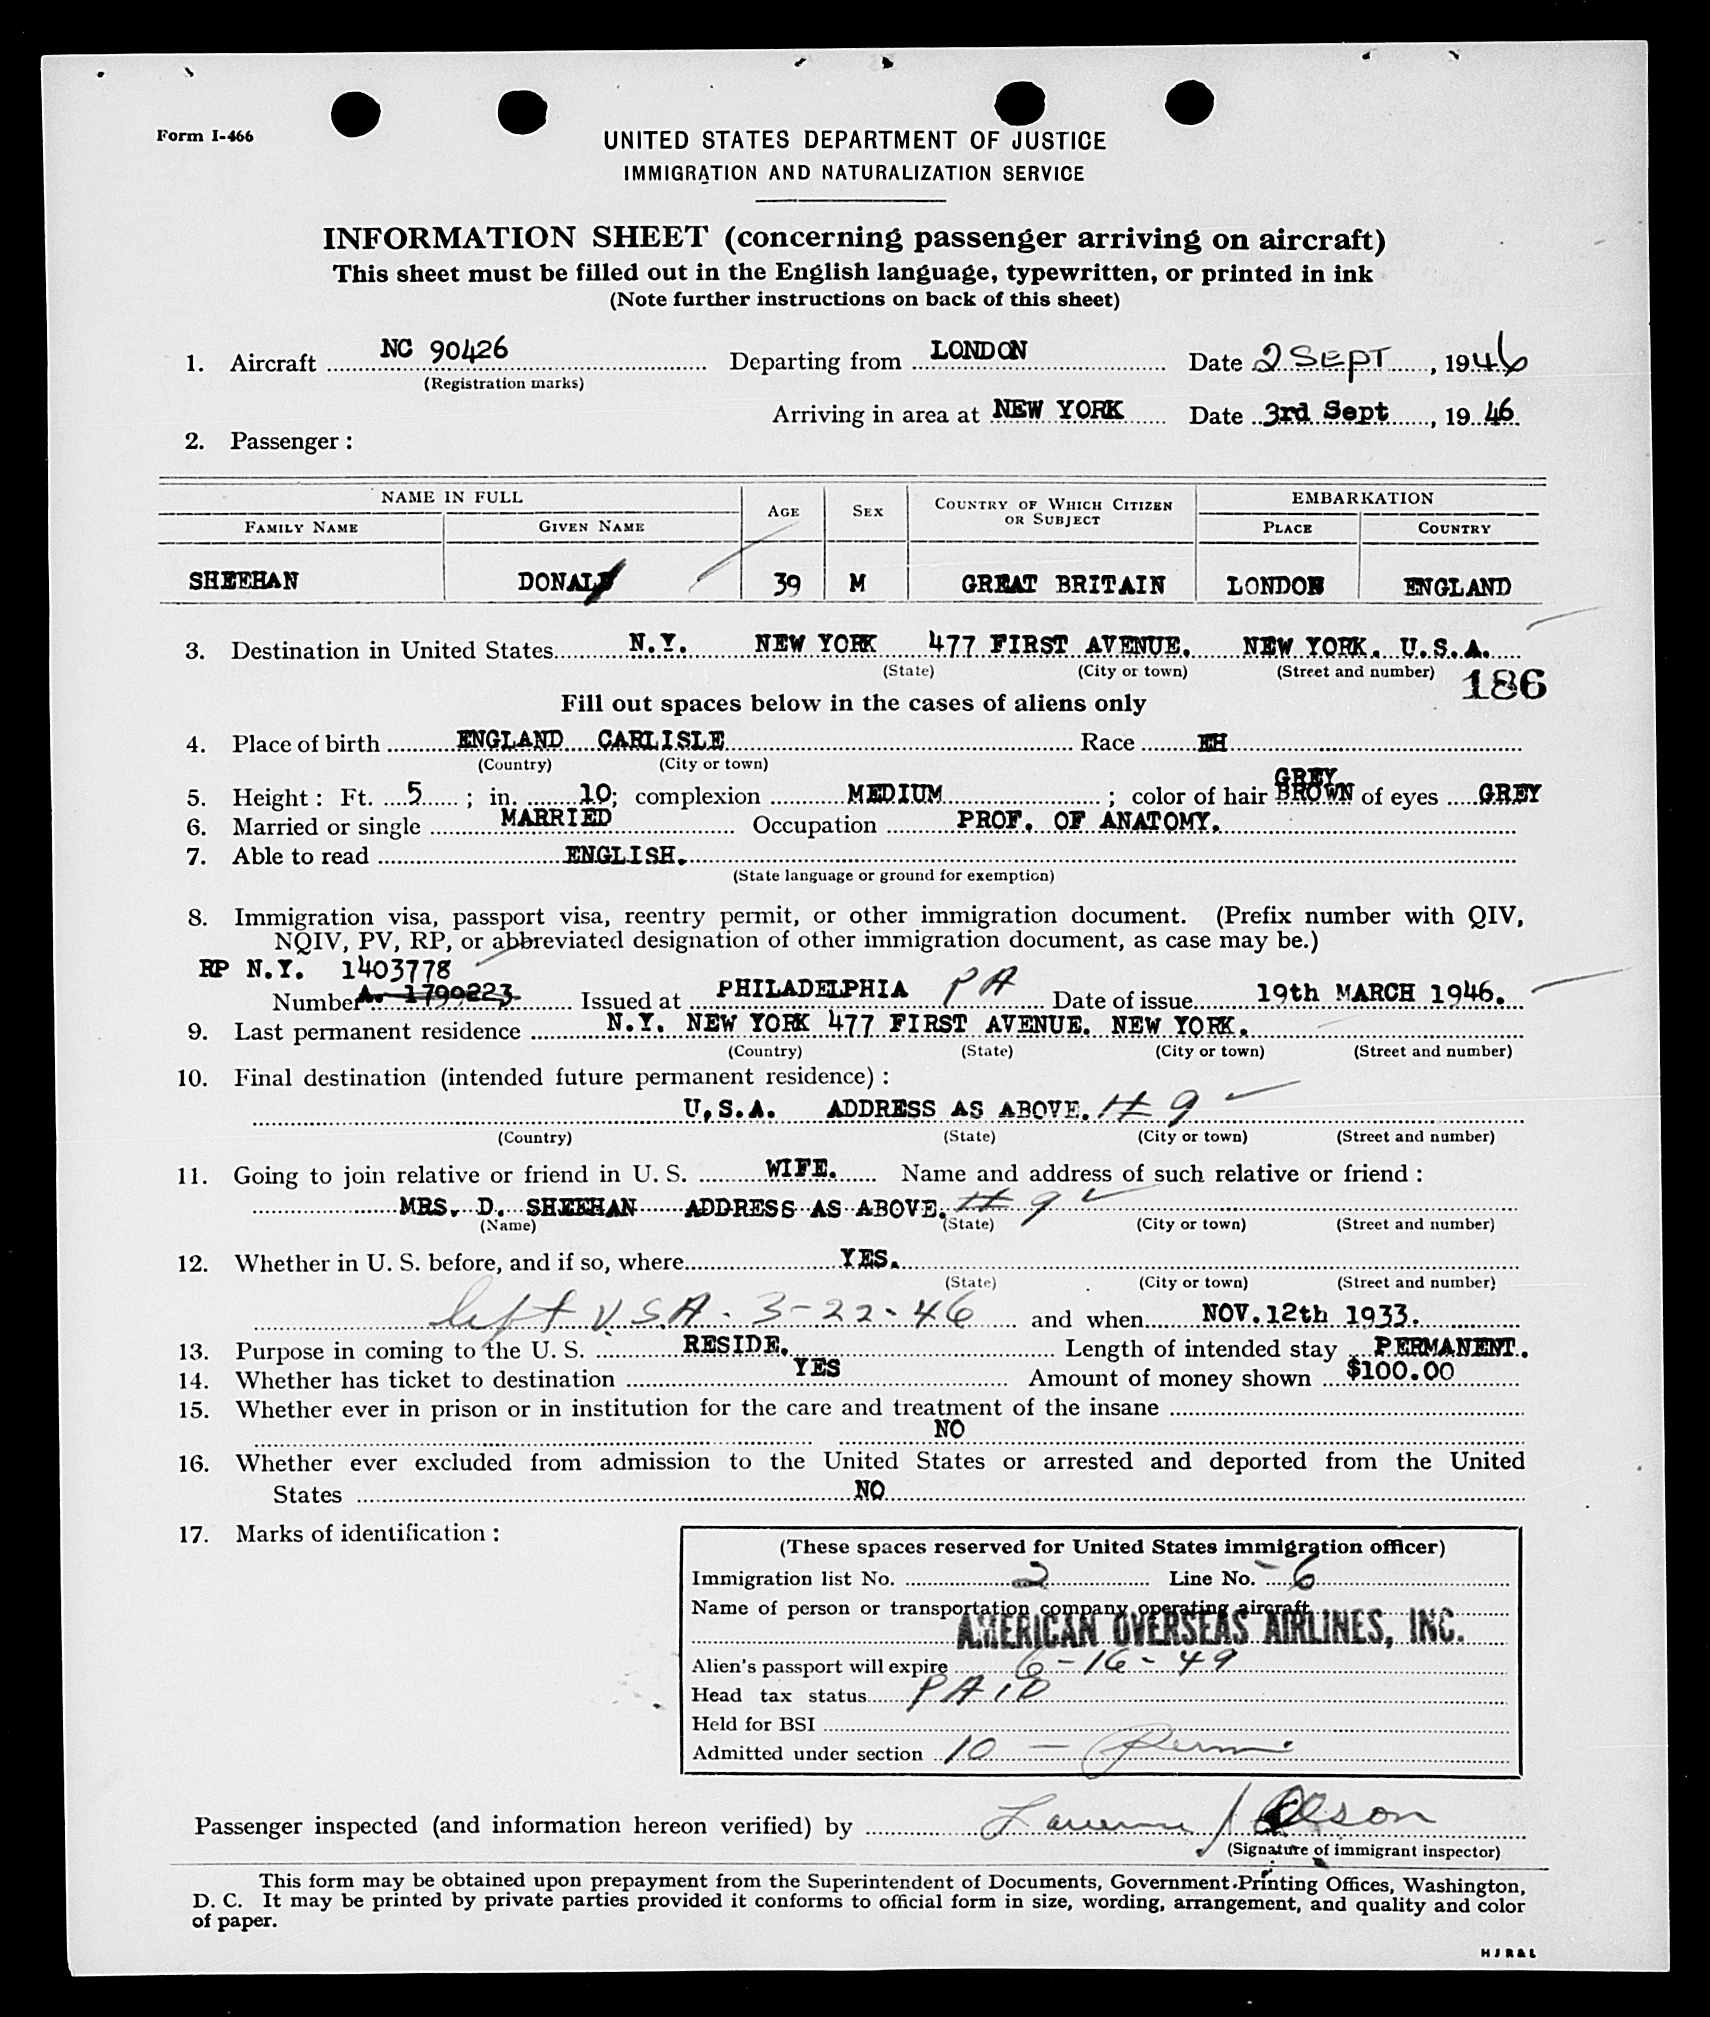 Form I-466
UNITED STATES DEPARTMENT OF JUSTICE
IMMIGRATION AND NATURALIZATION SERVICE
INFORMATION SHEET (concerning passenger arriving on aircraft)
This sheet must be filled out in the English language, typewritten, or printed in ink
(Note further instructions on back of this sheet)
1. Aircraft NC 90426 Departing from LONDON Date 2 SEPT, 1946
(Registration marks)
Arriving in area at NEW YORK Date 3rd Sept, 19 46
2. Passenger :
NAME IN FULL EMBARKATION
FAMILY NAME GIVEN NAME AGE SEX COUNTRY OF WHICH CITIZEN OR SUBJECT PLACE COUNTRY
SHEEHAN DONALD 39 M GREAT BRITAIN LONDON ENGLAND
3. Destination in United States N.Y. NEW YORK 477 FIRST AVENUE. NEW YORK. U.S.A.
(State) (City or town) (Street and number)
186
Fill out spaces below in the cases of aliens only
4. Place of birth ENGLAND CARLISLE Race EH
(Country) (City or town)
GREY
5. Height : Ft. 5 ; in. 10; complexion MEDIUM ; color of hair BROWN of eyes GREY
6. Married or single MARRIED Occupation PROF. OF ANATOMY.
7. Able to read ENGLISH.
(State language or ground for exemption)
8. Immigration visa, passport visa, reentry permit, or other immigration document. (Prefix number with QIV,
NQIV, PV, RP, or abbreviated designation of other immigration document, as case may be.)
RP N.Y. 1403778
Number A. 1799223 Issued at PHILADELPHIA PA Date of issue 19th MARCH 1946.
9. Last permanent residence N.Y. NEW YORK 477 FIRST AVENUE. NEW YORK.
(Country) (State) (City or town) (Street and number)
10. Final destination (intended future permanent residence) :
U.S.A. ADDRESS AS ABOVE. # 9
(Country) (State) (City or town) (Street and number)
11. Going to join relative or friend in U. S. WIFE. Name and address of such relative or friend :
MRS. D. SHEEHAN ADDRESS AS ABOVE. # 9
(Name) (State) (City or town) (Street and number)
12. Whether in U. S. before, and if so, where YES.
(State) (City or town) (Street and number)
left USA. 3-22-46 and when NOV.12th 1933.
13. Purpose in coming to the U. S. RESIDE. Length of intended stay PERMANENT.
14. Whether has ticket to destination YES Amount of money shown $100.00
15. Whether ever in prison or in institution for the care and treatment of the insane
NO
16. Whether ever excluded from admission to the United States or arrested and deported from the United
States NO
17. Marks of identification :
(These spaces reserved for United States immigration officer)
Immigration list No. 2 Line No. 6
Name of person or transportation company operating aircraft
AMERICAN OVERSEAS AIRLINES, INC.
Alien's passport will expire 6-16-49
Head tax status PAID
Held for BSI
Admitted under section 10 - Perm.
Passenger inspected (and information hereon verified) by Lawrence J Olson
(Signature of immigrant inspector)
This form may be obtained upon prepayment from the Superintendent of Documents, Government Printing Offices, Washington,
D. C. It may be printed by private parties provided it conforms to official form in size, wording, arrangement, and quality and color
of paper.
H J R & L